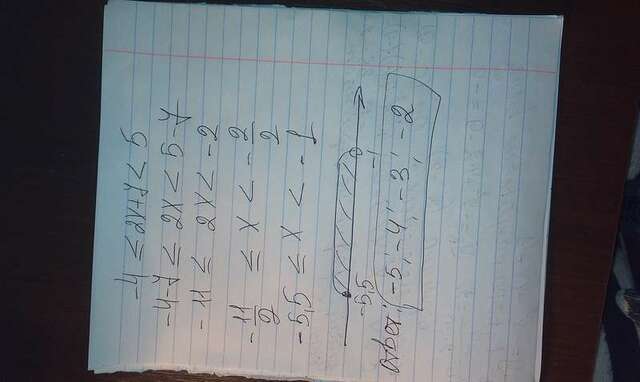 -4 ≤ 2x+7 < 5
-4-7 ≤ 2x < 5-7
-11 ≤ 2x < -2
-11/2 ≤ x < -2/2
-5,5 ≤ x < -1
-5,5 -1
ответ: -5; -4; -3; -2